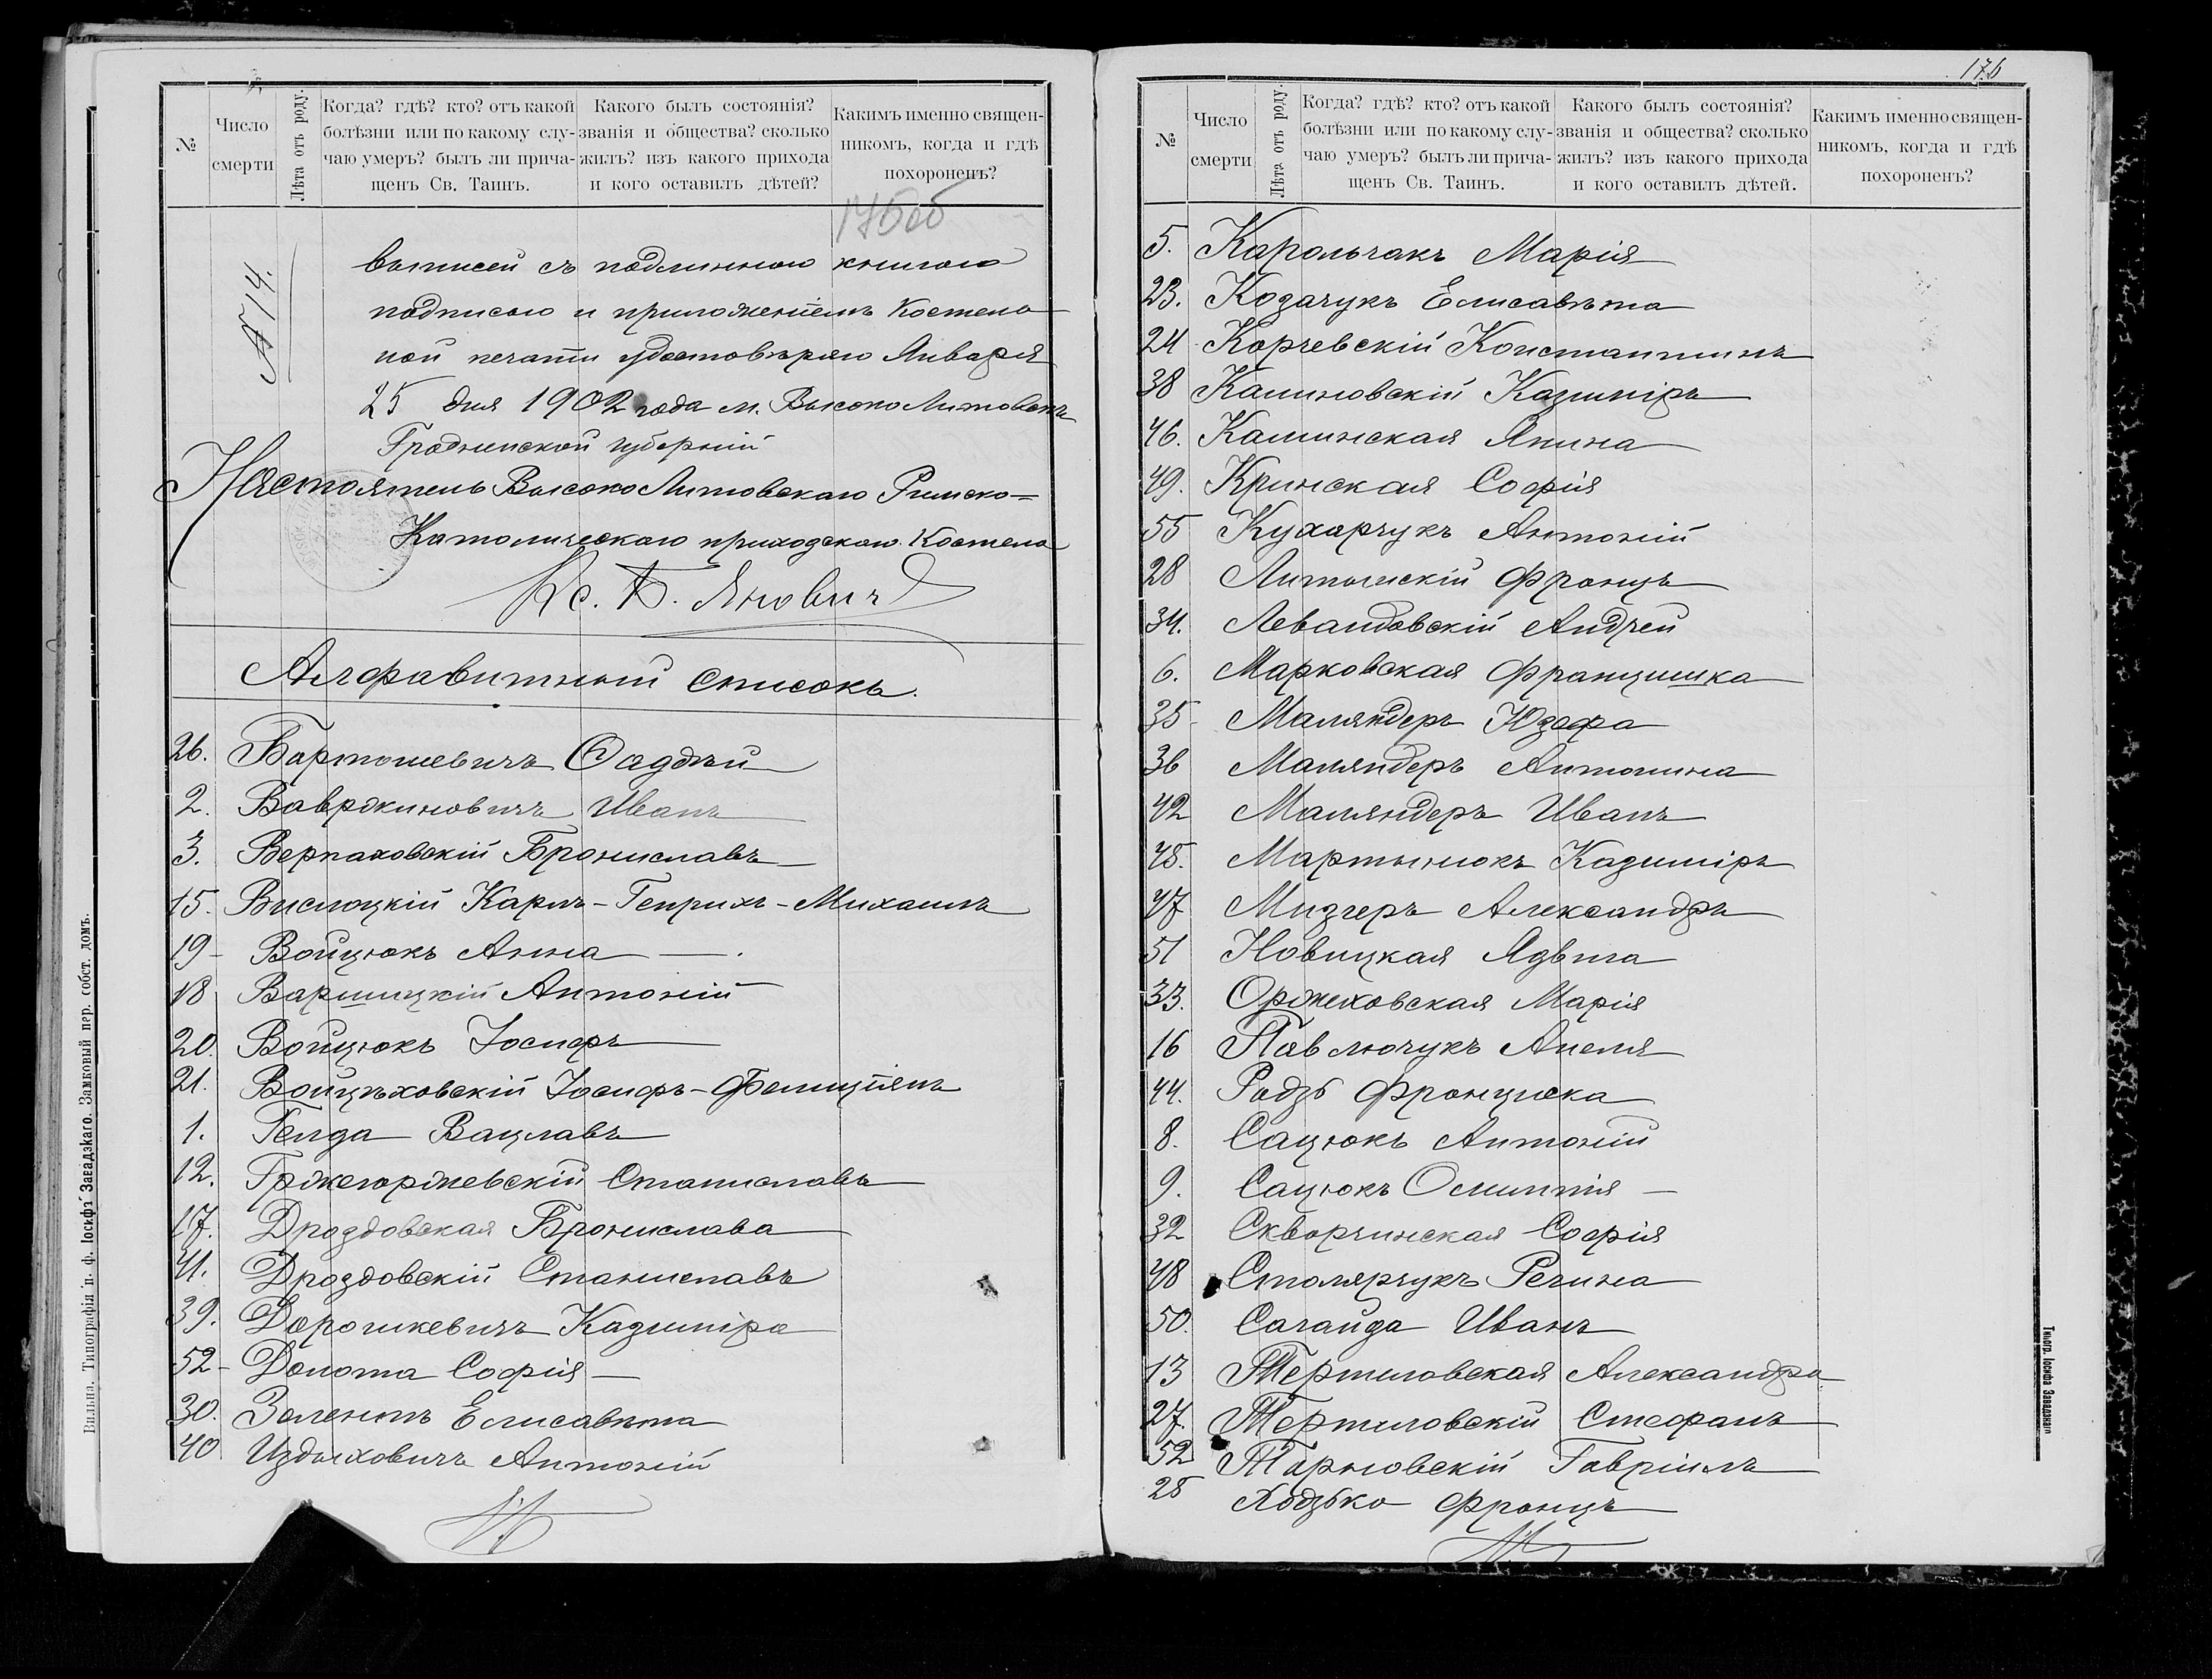 №
Число смерти
Лѣта отъ роду.
Когда? гдѣ? кто? отъ какой
болѣзни или по какому слу-
чаю умеръ? былъ ли прича-
щенъ Св. Таинъ.
Какого былъ состоянія?
званія и общества? сколько
жилъ? изъ какого прихода
и кого оставилъ дѣтей?
Какимъ именно священ-
никомъ, когда и гдѣ
похороненъ?
176об
№ 14.
выписей съ подлинною книгою
подписью и приложеніемъ Костель
ной печати удостовѣряю Января
25 дня 1902 года м. Высоко Литовскъ
Гродненской губерніи
Настоятель Высоко Литовскаго Римско=
Католическаго приходскаго Костела
Кс. Яновичъ
Алфавитный списокъ.
26. Бартошевичъ Фаддѣй
2. Вавржиновичъ Иванъ
3. Верпаховскій Брониславъ
15. Вислоцкій Карлъ-Генрихъ-Михаилъ
19- Войцюкъ Анна
18 Варшицкій Антоній
20. Войцюкъ Іосифъ
21. Войцѣховскій Іосифъ-Фелиціянъ
1. Гелда Вацлавъ
12. Гржегоржевскій Станиславъ
17. Дроздовская Бронислава
41. Дроздовскій Станиславъ
39. Дорошкевичъ Казиміра
52- Долота Софія
30. Елисавѣта
40 Издыховичъ Антоній
Вильна. Типографія п. ф. Іосифъ Завадзкаго. Замковый пер. собст. домъ.
176
№
Число смерти
Лѣта отъ роду.
Когда? гдѣ? кто? отъ какой
болѣзни или по какому слу-
чаю умеръ? былъ ли прича-
щенъ Св. Таинъ.
Какого былъ состоянія?
званія и общества? сколько
жилъ? изъ какого прихода
и кого оставилъ дѣтей.
Какимъ именно священ-
никомъ, когда и гдѣ
похороненъ?
5. Карольчакъ Марія
23. Козачукъ Елисавѣта
24 Корчевскій Константинъ
38 Калиновскій Казиміръ
46. Каминская Янина
49. Кринская Софія
55 Кухарчукъ Антоній
28 Францъ
34. Левандовскій Андрей
6. Марковская Францишка
35- Маляндеръ Юзефа
36 Маляндеръ Антонина
42 Маляндеръ Иванъ
45. Мартынюкъ Казиміръ
47 Мизгеръ Александръ
51 Новицкая Ядвига
33. Оржеховская Марія
16 Павлючукъ Анеля
44. Радзь Франциска
8. Сацюкъ Антоній
9. Сацюкъ
32 Скворчинская Софія
48 Столярчукъ Регина
50. Сагайда Иванъ
13 Тертиловская Александра
27. Тертиловскій Стефанъ
52 Тарновскій Гавріилъ
25 Ходзько Францъ
Типогр. Іосифа Завадзкаго